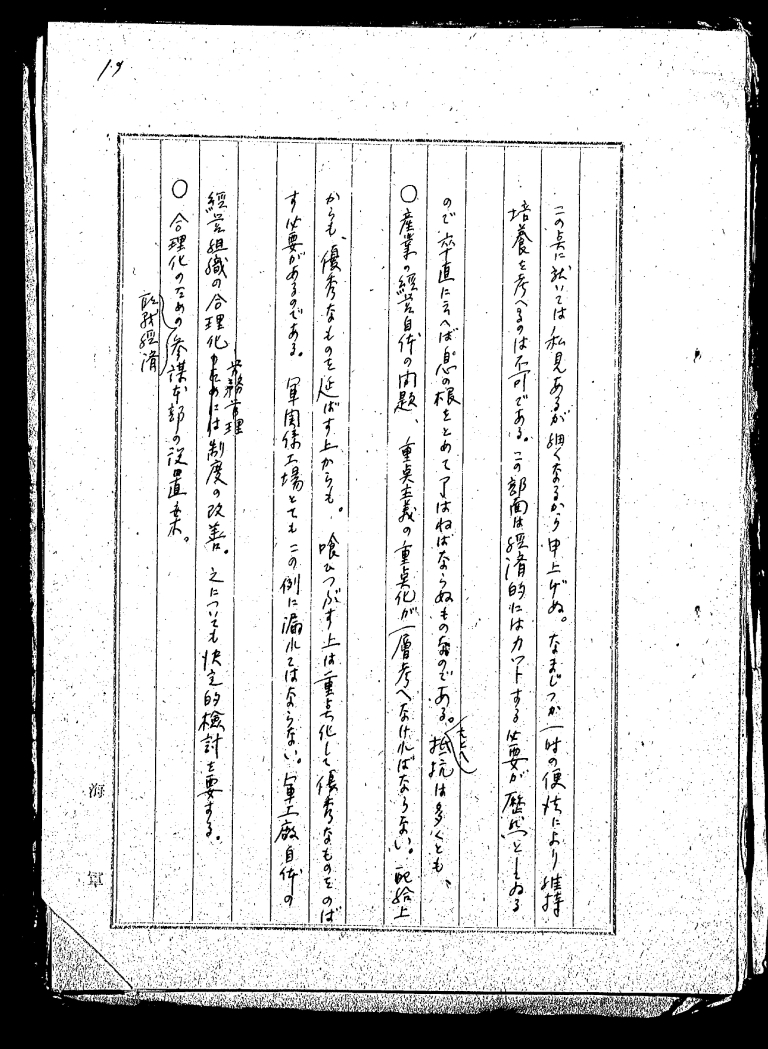 19
この点に就いては私見あるが細くなるから申上げぬ。なまじつか一時の便法により維持
培養を考へるのは不可である。この部面は経済的にはカットする必要が歴然としゐる
ので卒直に云へば息の根をとめて了はねばならぬものなのである。抵抗は多くとも、
たとへ
〇産業の経営自体の問題、重点主義の重点化が一層考へなければならない。配給上
からも、優秀なものを延ばす上からも。喰ひつぶす上は重点化して優秀なものをのば
す必要があるのである。軍関係工場とてもこの例に漏れてはならない。軍工廠自体の
労務管理
經営組織の合理化のためには制度の改善。之についても決定的檢討を要する。
〇合理化のための参謀本部の設置案。
配我經済
海軍